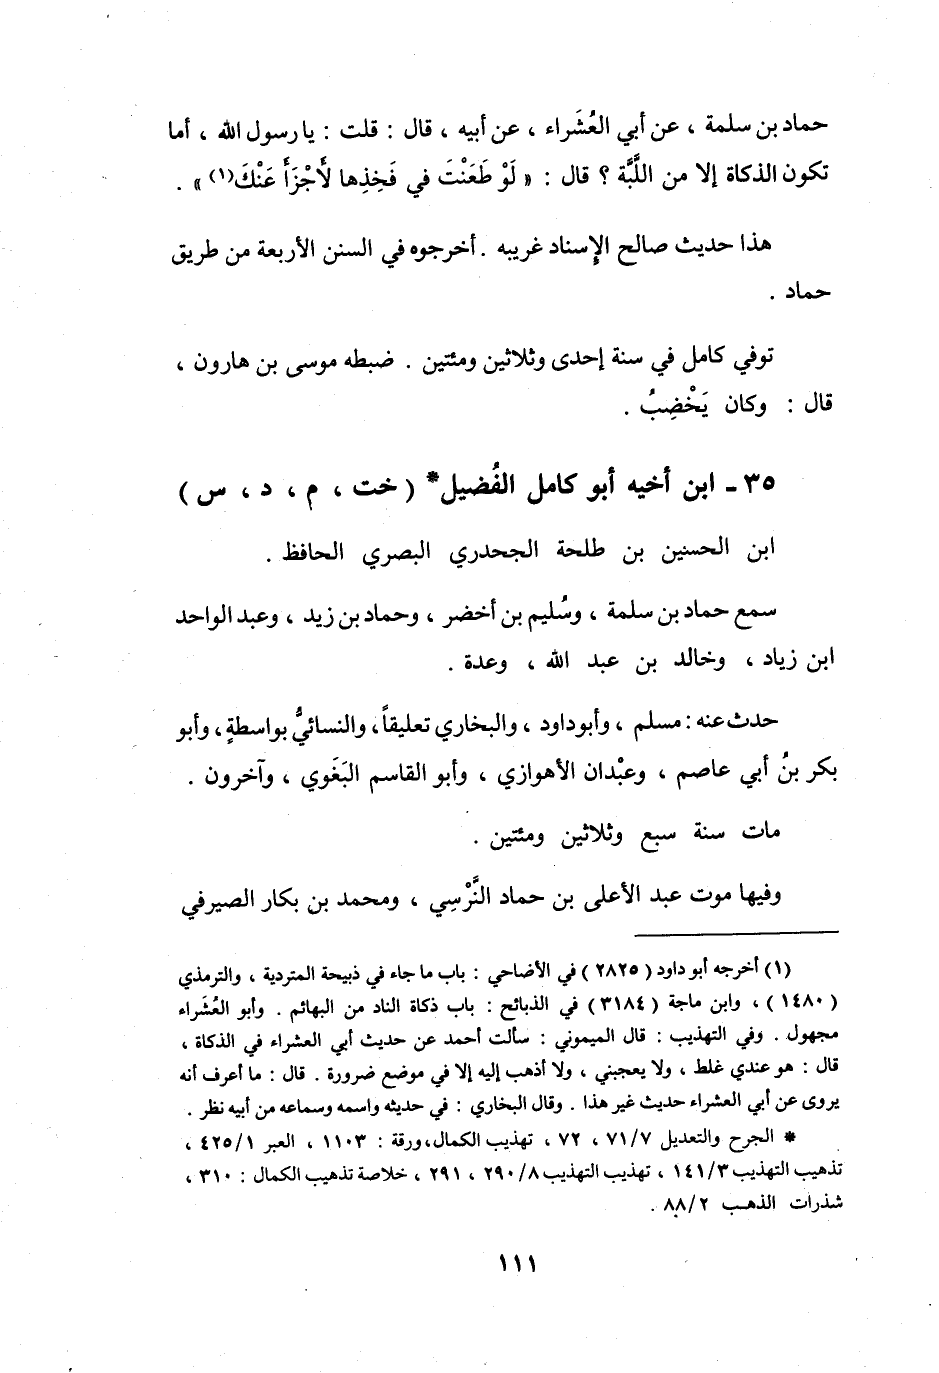 حماد بن سلمة ، عن أبي العُشَراء ، عن أبيه ، قال : قلت : يا رسول الله ، أما
تكون الذكاة إلا من اللَّبَّة ؟ قال : « لَوْ طَعَنْتَ في فَخِذِها لأَجْزَأَ عَنْكَ(١) » .
هذا حديث صالح الإسناد غريبه . أخرجوه في السنن الأربعة من طريق
حماد .
توفي كامل في سنة إحدى وثلاثين ومئتين . ضبطه موسى بن هارون ،
قال : وكان يَخْضِبُ .
٣٥ - ابن أخيه أبو كامل الفُضيل* ( خت ، م ، د ، س )
ابن الحسنين بن طلحة الجحدري البصري الحافظ .
سمع حماد بن سلمة ، وسُليم بن أخضر ، وحماد بن زيد ، وعبد الواحد
ابن زياد ، وخالد بن عبد الله ، وعدة .
حدث عنه : مسلم ، وأبو داود ، والبخاري تعليقاً ، والنسائيُّ بواسطةٍ ، وأبو
بكر بنُ أبي عاصم ، وعبْدان الأهوازي ، وأبو القاسم البَغَوي ، وآخرون .
مات سنة سبع وثلاثين ومئتين .
وفيها موت عبد الأعلى بن حماد النَّرْسِي ، ومحمد بن بكار الصيرفي
(١) أخرجه أبو داود ( ٢٨٢٥ ) في الأضاحي : باب ما جاء في ذبيحة المتردية ، والترمذي
( ١٤٨٠ ) ، وابن ماجة ( ٣١٨٤ ) في الذبائح : باب ذكاة الناد من البهائم . وأبو العُشَراء
مجهول . وفي التهذيب : قال الميموني : سألت أحمد عن حديث أبي العشراء في الذكاة ،
قال : هو عندي غلط ، ولا يعجبني ، ولا أذهب إليه إلا في موضع ضرورة . قال : ما أعرف أنه
يروى عن أبي العشراء حديث غير هذا . وقال البخاري : في حديثه واسمه وسماعه من أبيه نظر .
* الجرح والتعديل ٧١/٧ ، ٧٢ ، تهذيب الكمال، ورقة : ١١٠٣ ، العبر ٤٢٥/١ ،
تذهيب التهذيب ١٤١/٣ ، تهذيب التهذيب ٢٩٠/٨ ، ٢٩١ ، خلاصة تذهيب الكمال : ٣١٠ ،
شذرات الذهب ٨٨/٢ .
١١١